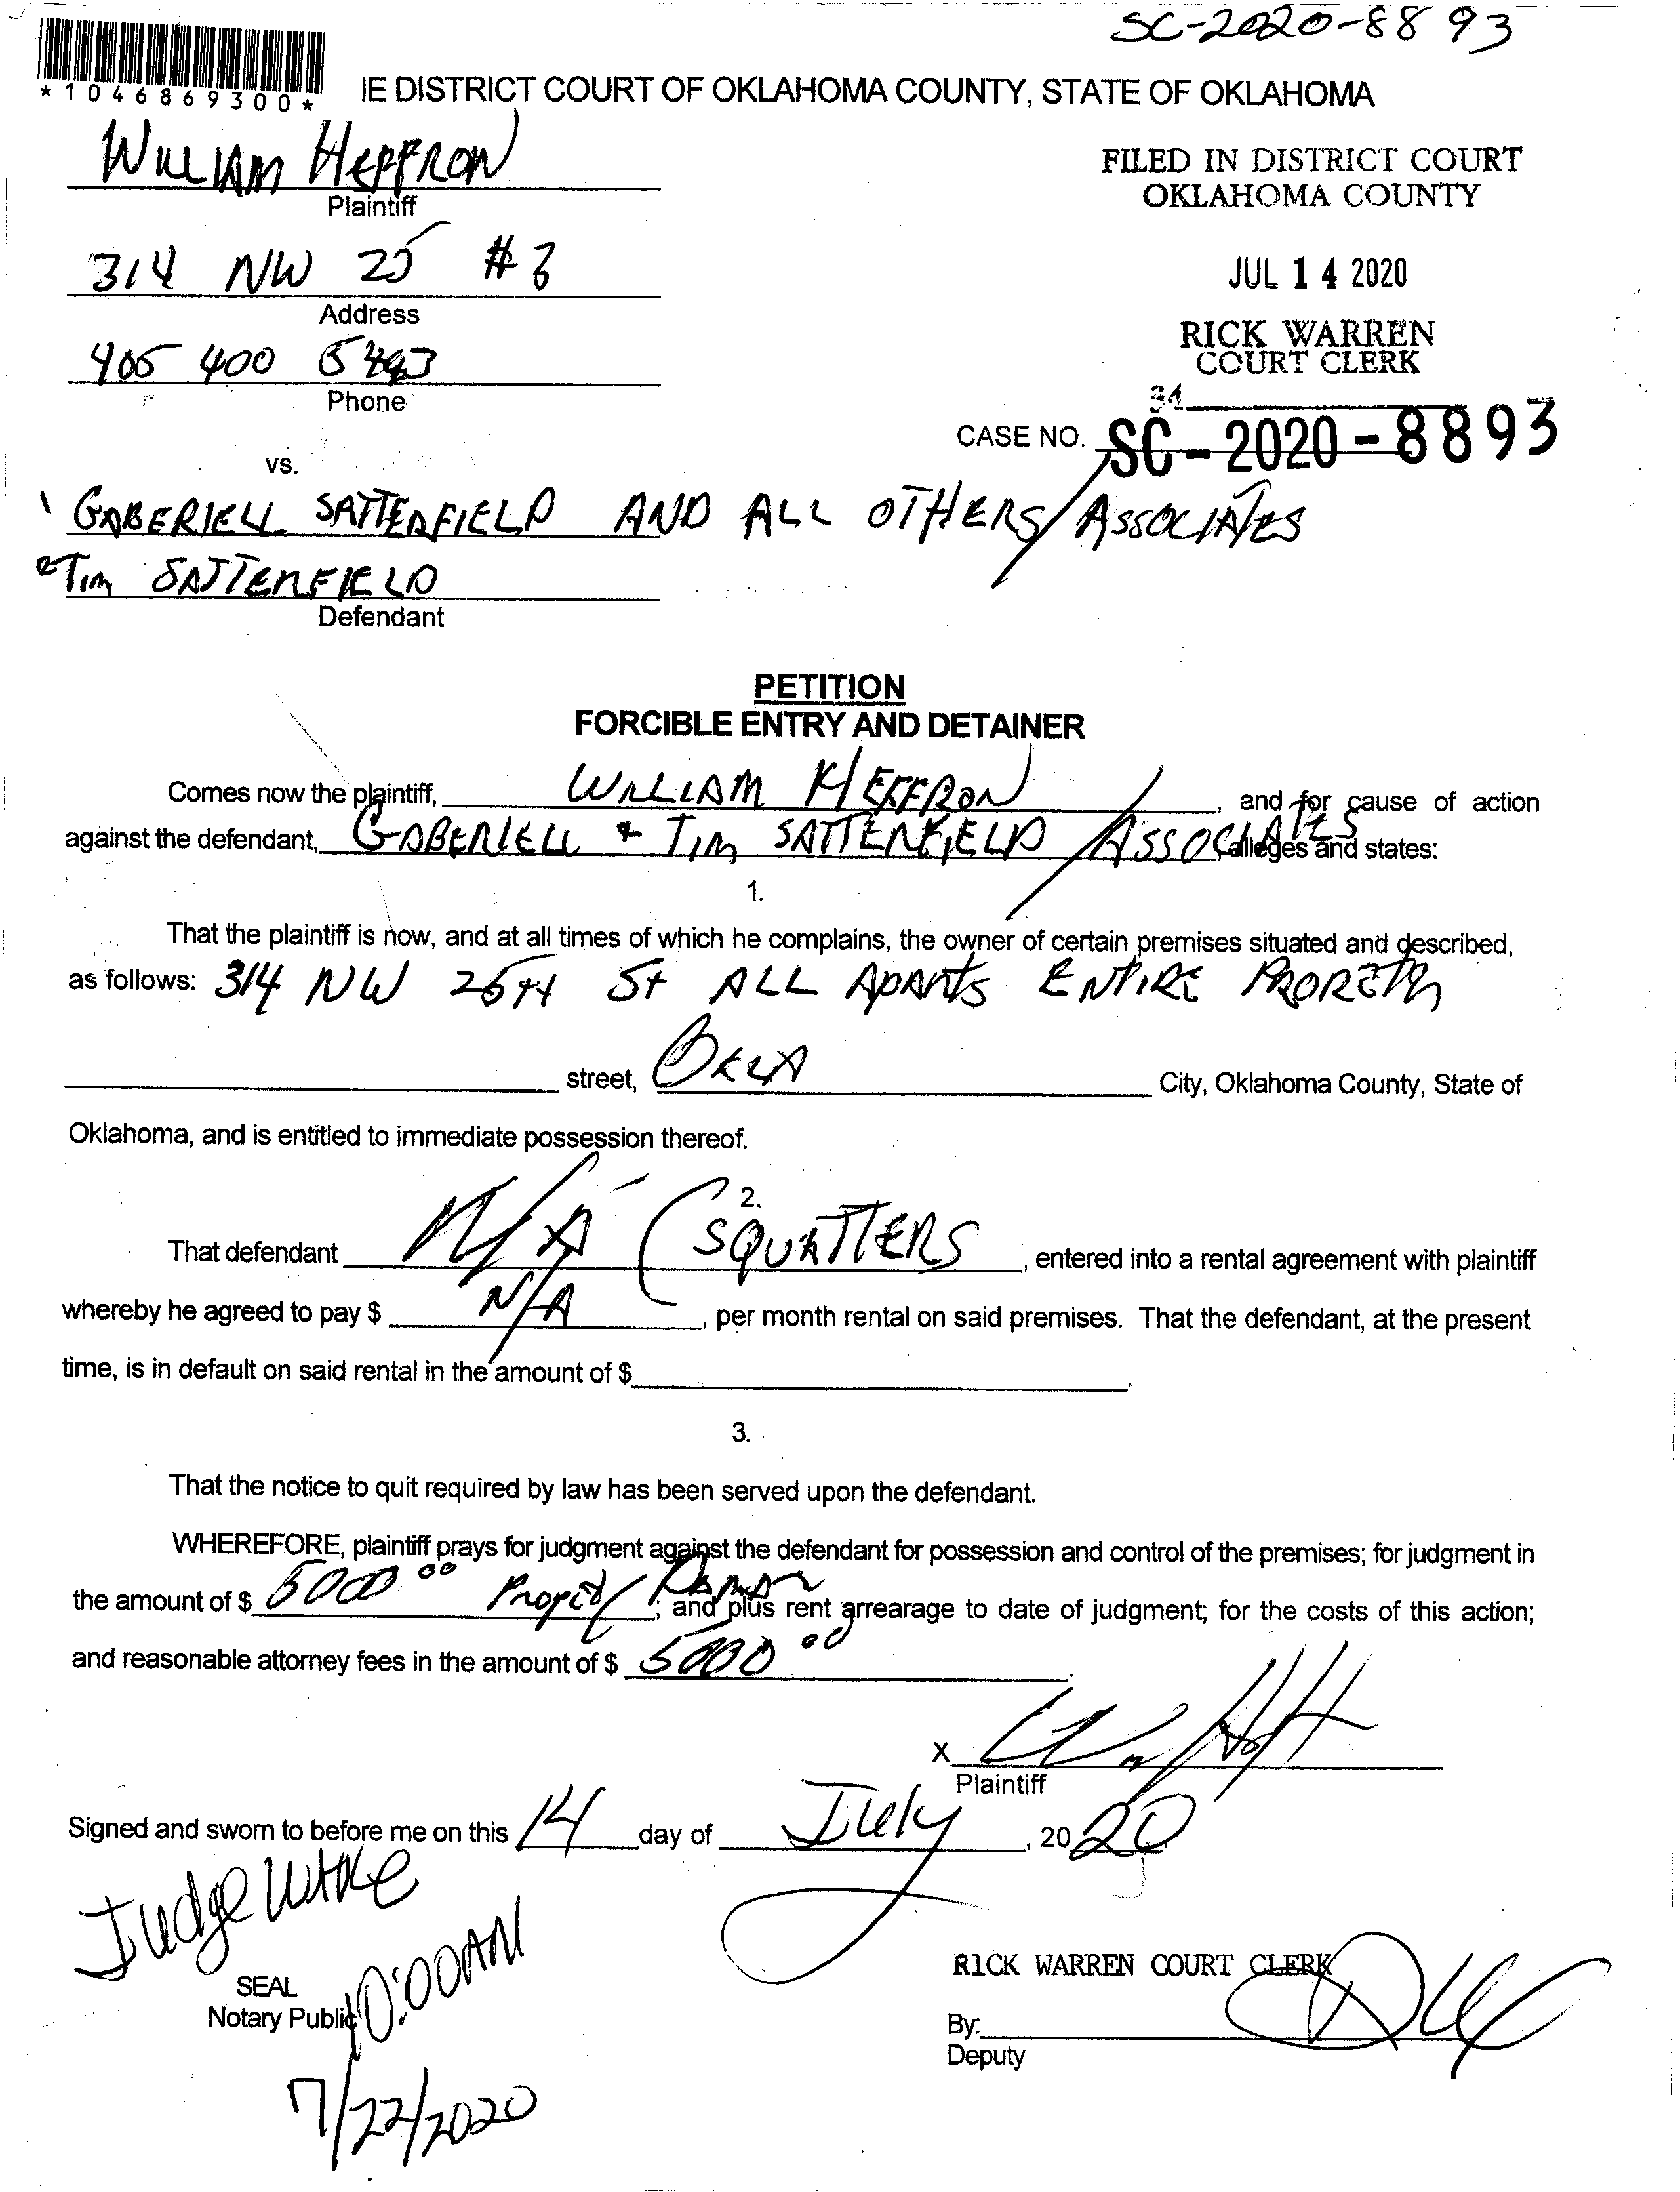 SC-2020-8893
*1046869300*
IE DISTRICT COURT OF OKLAHOMA COUNTY, STATE OF OKLAHOMA
WILLIAM HEFFRON
Plaintiff
FILED IN DISTRICT COURT
OKLAHOMA COUNTY
314 NW 25 #3
Address
JUL 14 2020
405 400 5493
Phone
RICK WARREN
COURT CLERK
34
CASE NO. SC-2020-8893
vs.
1 GABERIELL SATTERFIELD AND ALL OTHERS/ASSOCIATES
2 TIM SATTERFIELD
Defendant
PETITION
FORCIBLE ENTRY AND DETAINER
Comes now the plaintiff, WILLIAM HEFFRON, and for cause of action
against the defendant, GABERIELL & TIM SATTERFIELD / ASSOCIATES alleges and states:
1.
That the plaintiff is now, and at all times of which he complains, the owner of certain premises situated and described,
as follows: 314 NW 25TH St ALL APARTS ENTIRE
street, OKLA City, Oklahoma County, State of
Oklahoma, and is entitled to immediate possession thereof.
2.
That defendant N/A (SQUATTERS, entered into a rental agreement with plaintiff
whereby he agreed to pay $ N/A, per month rental on said premises. That the defendant, at the present
time, is in default on said rental in the amount of $ .
3.
That the notice to quit required by law has been served upon the defendant.
WHEREFORE, plaintiff prays for judgment against the defendant for possession and control of the premises; for judgment in
the amount of $ 5000 00 ; and plus rent arrearage to date of judgment; for the costs of this action;
and reasonable attorney fees in the amount of $ 5000 00.
X
Plaintiff
Signed and sworn to before me on this 14 day of July, 2020
Judge
10:00AM
SEAL
Notary Public
7/22/2020
RICK WARREN COURT CLERK
By:
Deputy